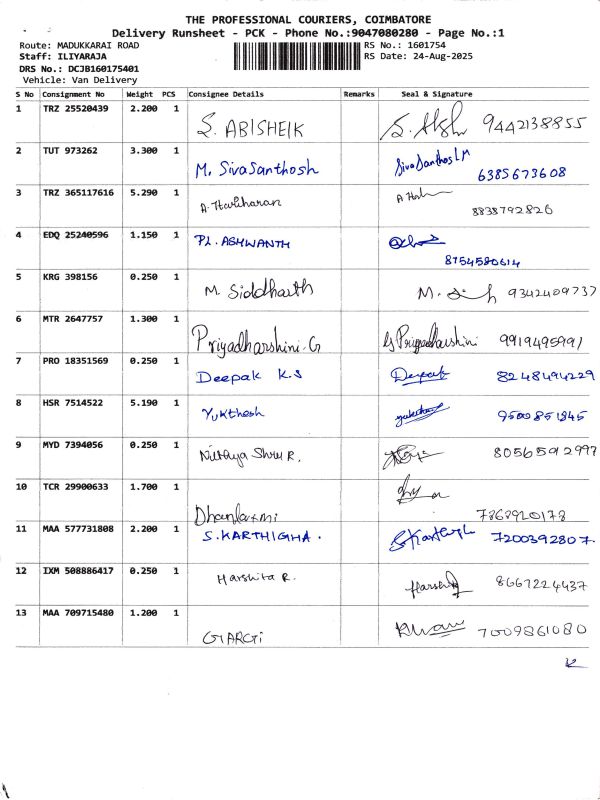 THE PROFESSIONAL COURIERS, COIMBATORE
Delivery Runsheet - PCK - Phone No.:9047080280 - Page No.:1
Route: MADUKKARAI ROAD
RS No.: 1601754
Staff: ILIYARAJA
RS Date: 24-Aug-2025
DRS No.: DCJB160175401
Vehicle: Van Delivery
S No Consignment No Weight PCS Consignee Details Remarks Seal & Signature
1 TRZ 25520439 2.200 1 S. ABISHEIK 9442138855
2 TUT 973262 3.300 1 M. SivaSanthosh SivaSanthosh M 6385673608
3 TRZ 365117616 5.290 1 A. Hariharan 8838792826
4 EDQ 25240596 1.150 1 PL. ASHWANTH 8754580614
5 KRG 398156 0.250 1 M. Siddharth 9342409737
6 MTR 2647757 1.300 1 Priyadharshini. G G Priyadharshini 9919495991
7 PRO 18351569 0.250 1 Deepak K.S Deepak 8248494229
8 HSR 7514522 5.190 1 Yukthesh 9500851345
9 MYD 7394056 0.250 1 Nithya Shree R. 8056592997
10 TCR 29900633 1.700 1 Dhanlaxmi 7868920178
11 MAA 577731808 2.200 1 S.KARTHIGHA. 7200392807.
12 IXM 508886417 0.250 1 Harshita R. 8667224437
13 MAA 709715480 1.200 1 GARGI 7009861080